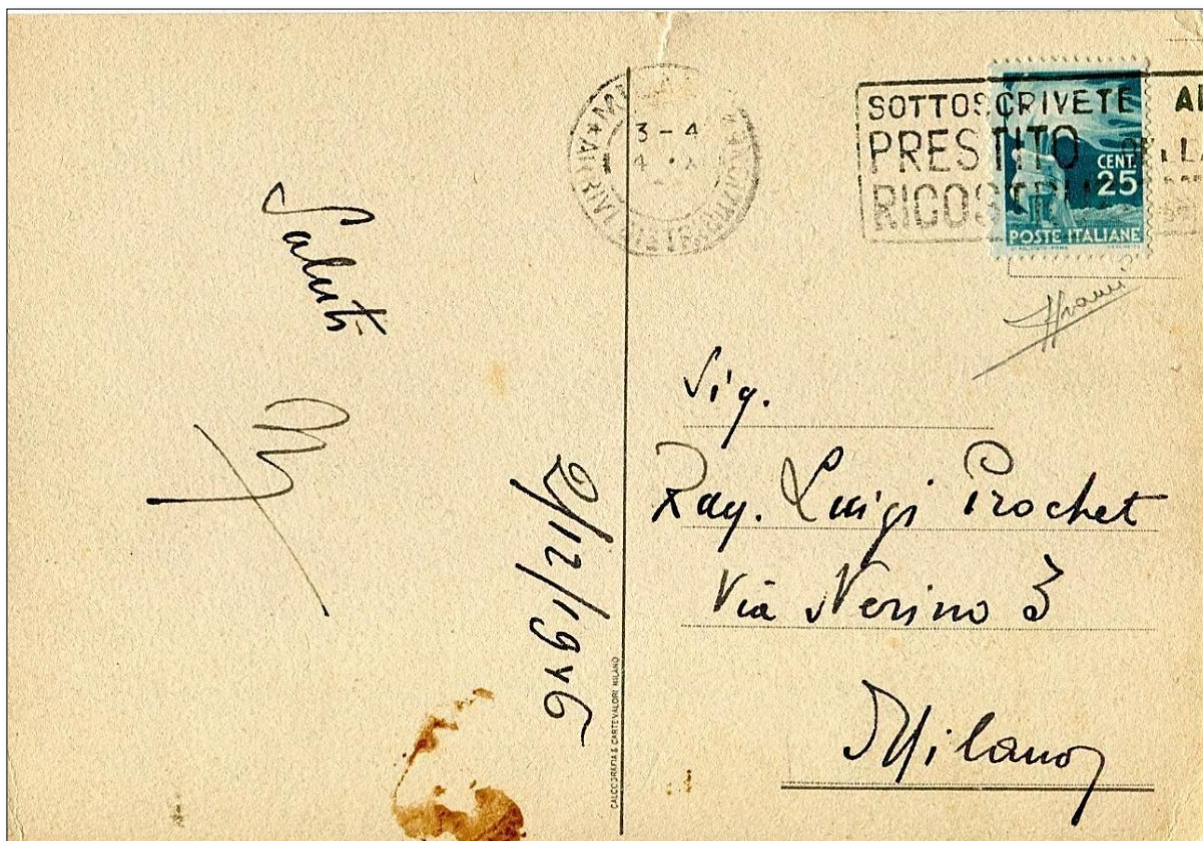 Saluti
2/12/1946
CALCOGRAFIA & CARTEVALORI MILANO
SOTTOSCRIVETE
PRESTITO
CENT.
25
POSTE ITALIANE
Sig.
Rag. Luigi Prochet
Via Nerino 3
Milano